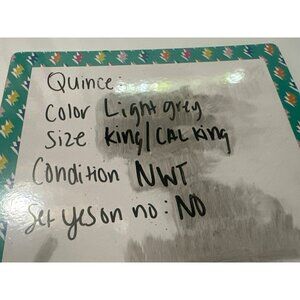 Quince:
Color Light grey
Size King/CAL King
Condition NWT
Set yes on no: NO